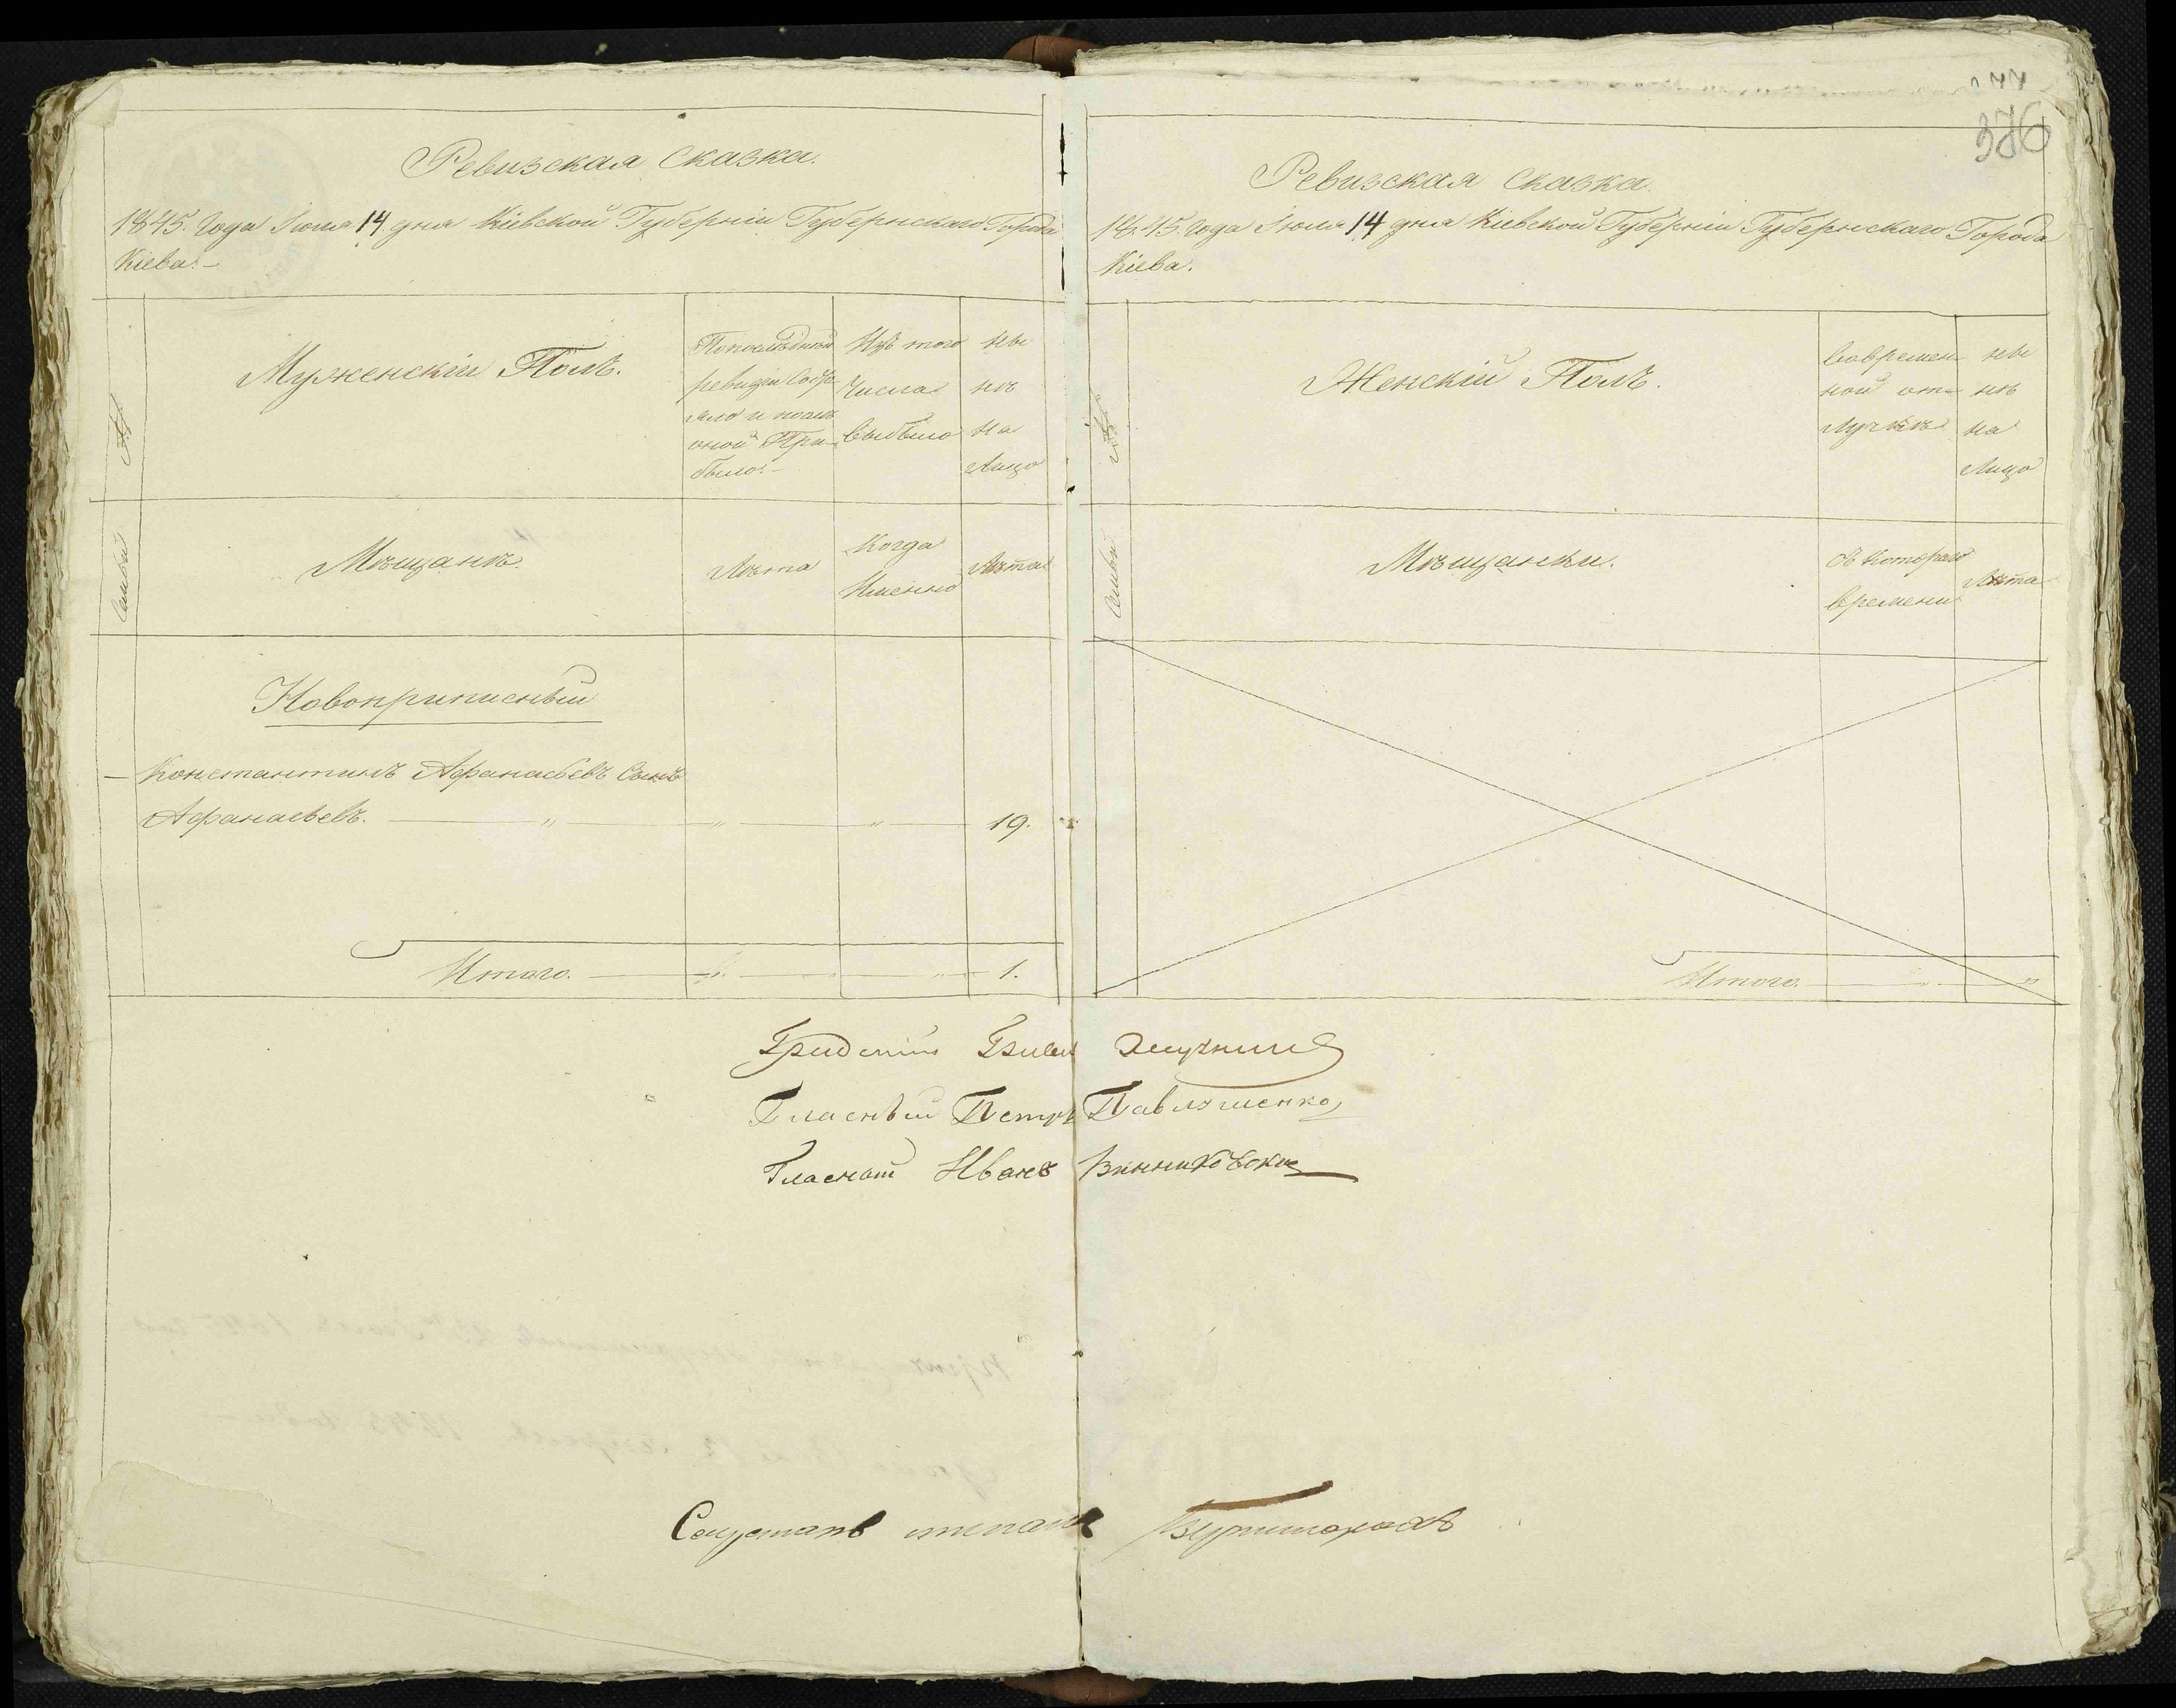 376
Ревизская Сказка.
1845. Года Іюля 14 дня Кіевской Губерніи Губернскаго Города
Кіева.
№
Мужескій Полъ.
По последней
ревизіи Состо
яло и после
оной При-
было.
Изъ того
Числа
выбыло
Ны
нѣ
На
Лицо
Семьи
Мѣщанъ.
Лѣта
Когда
Именно
Лѣта
Новоприписный
Константинъ Афанасьевъ Сынъ
Афанасьевъ. 19.
Итого. 1.
Ревизская Сказка
1845. Года Іюля 14 дня Кіевской Губерніи Губернскаго Города
Кіева.
№
Женскій Полъ.
Вовремен
ной от-
лучкѣ
Ны
нѣ
На
Лицо
Семьи
Мѣщанки.
Съ Котораго
времени
Лѣта
Итого.
Гласный Петръ Павлушенко
Гласный Иванъ Винниковскій